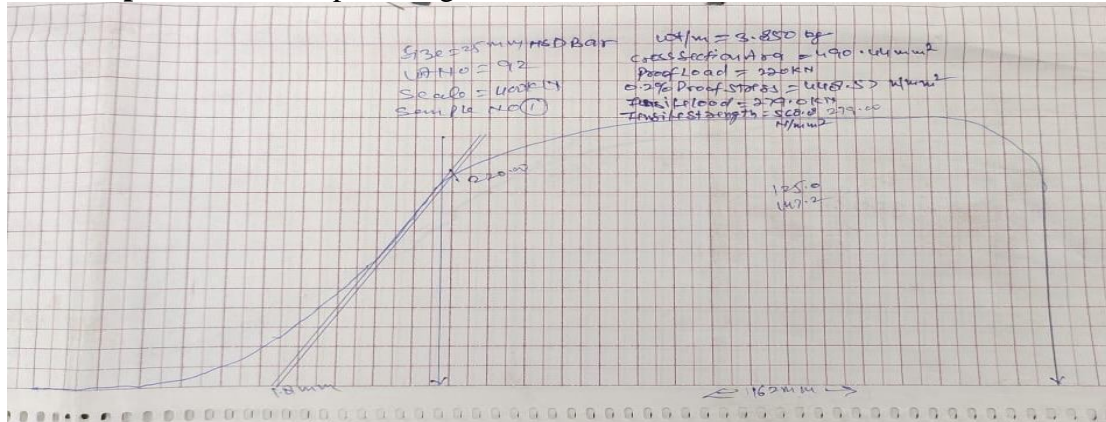 Size = 25 mm HSD Bar
LAB NO = 92
Scale = 400KN
Sample NO ①
wt/m = 3.850 kg
Cross Section Area = 490.44mm²
Proof Load = 220KN
0.2% Proof Stress = 448.57 N/mm²
Tensile load = 279.0KN
Tensile Strength = 568.8 N/mm²
279.00
220.00
125.0
147.2
1.8mm
162mm